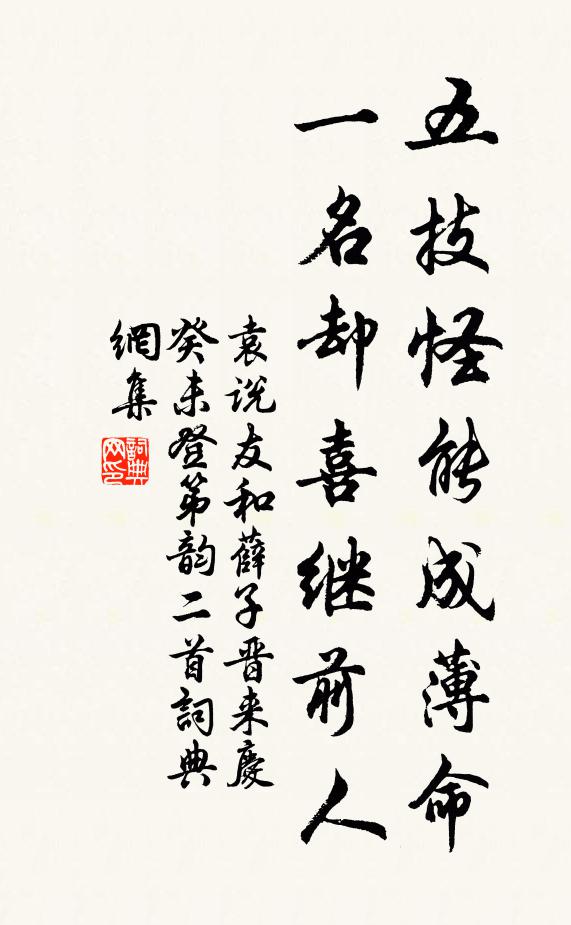 五技怪能成薄命
一名却喜继前人
袁说友和薛子晋来慶
癸未登第韵二首詞典
網集
詞典网印